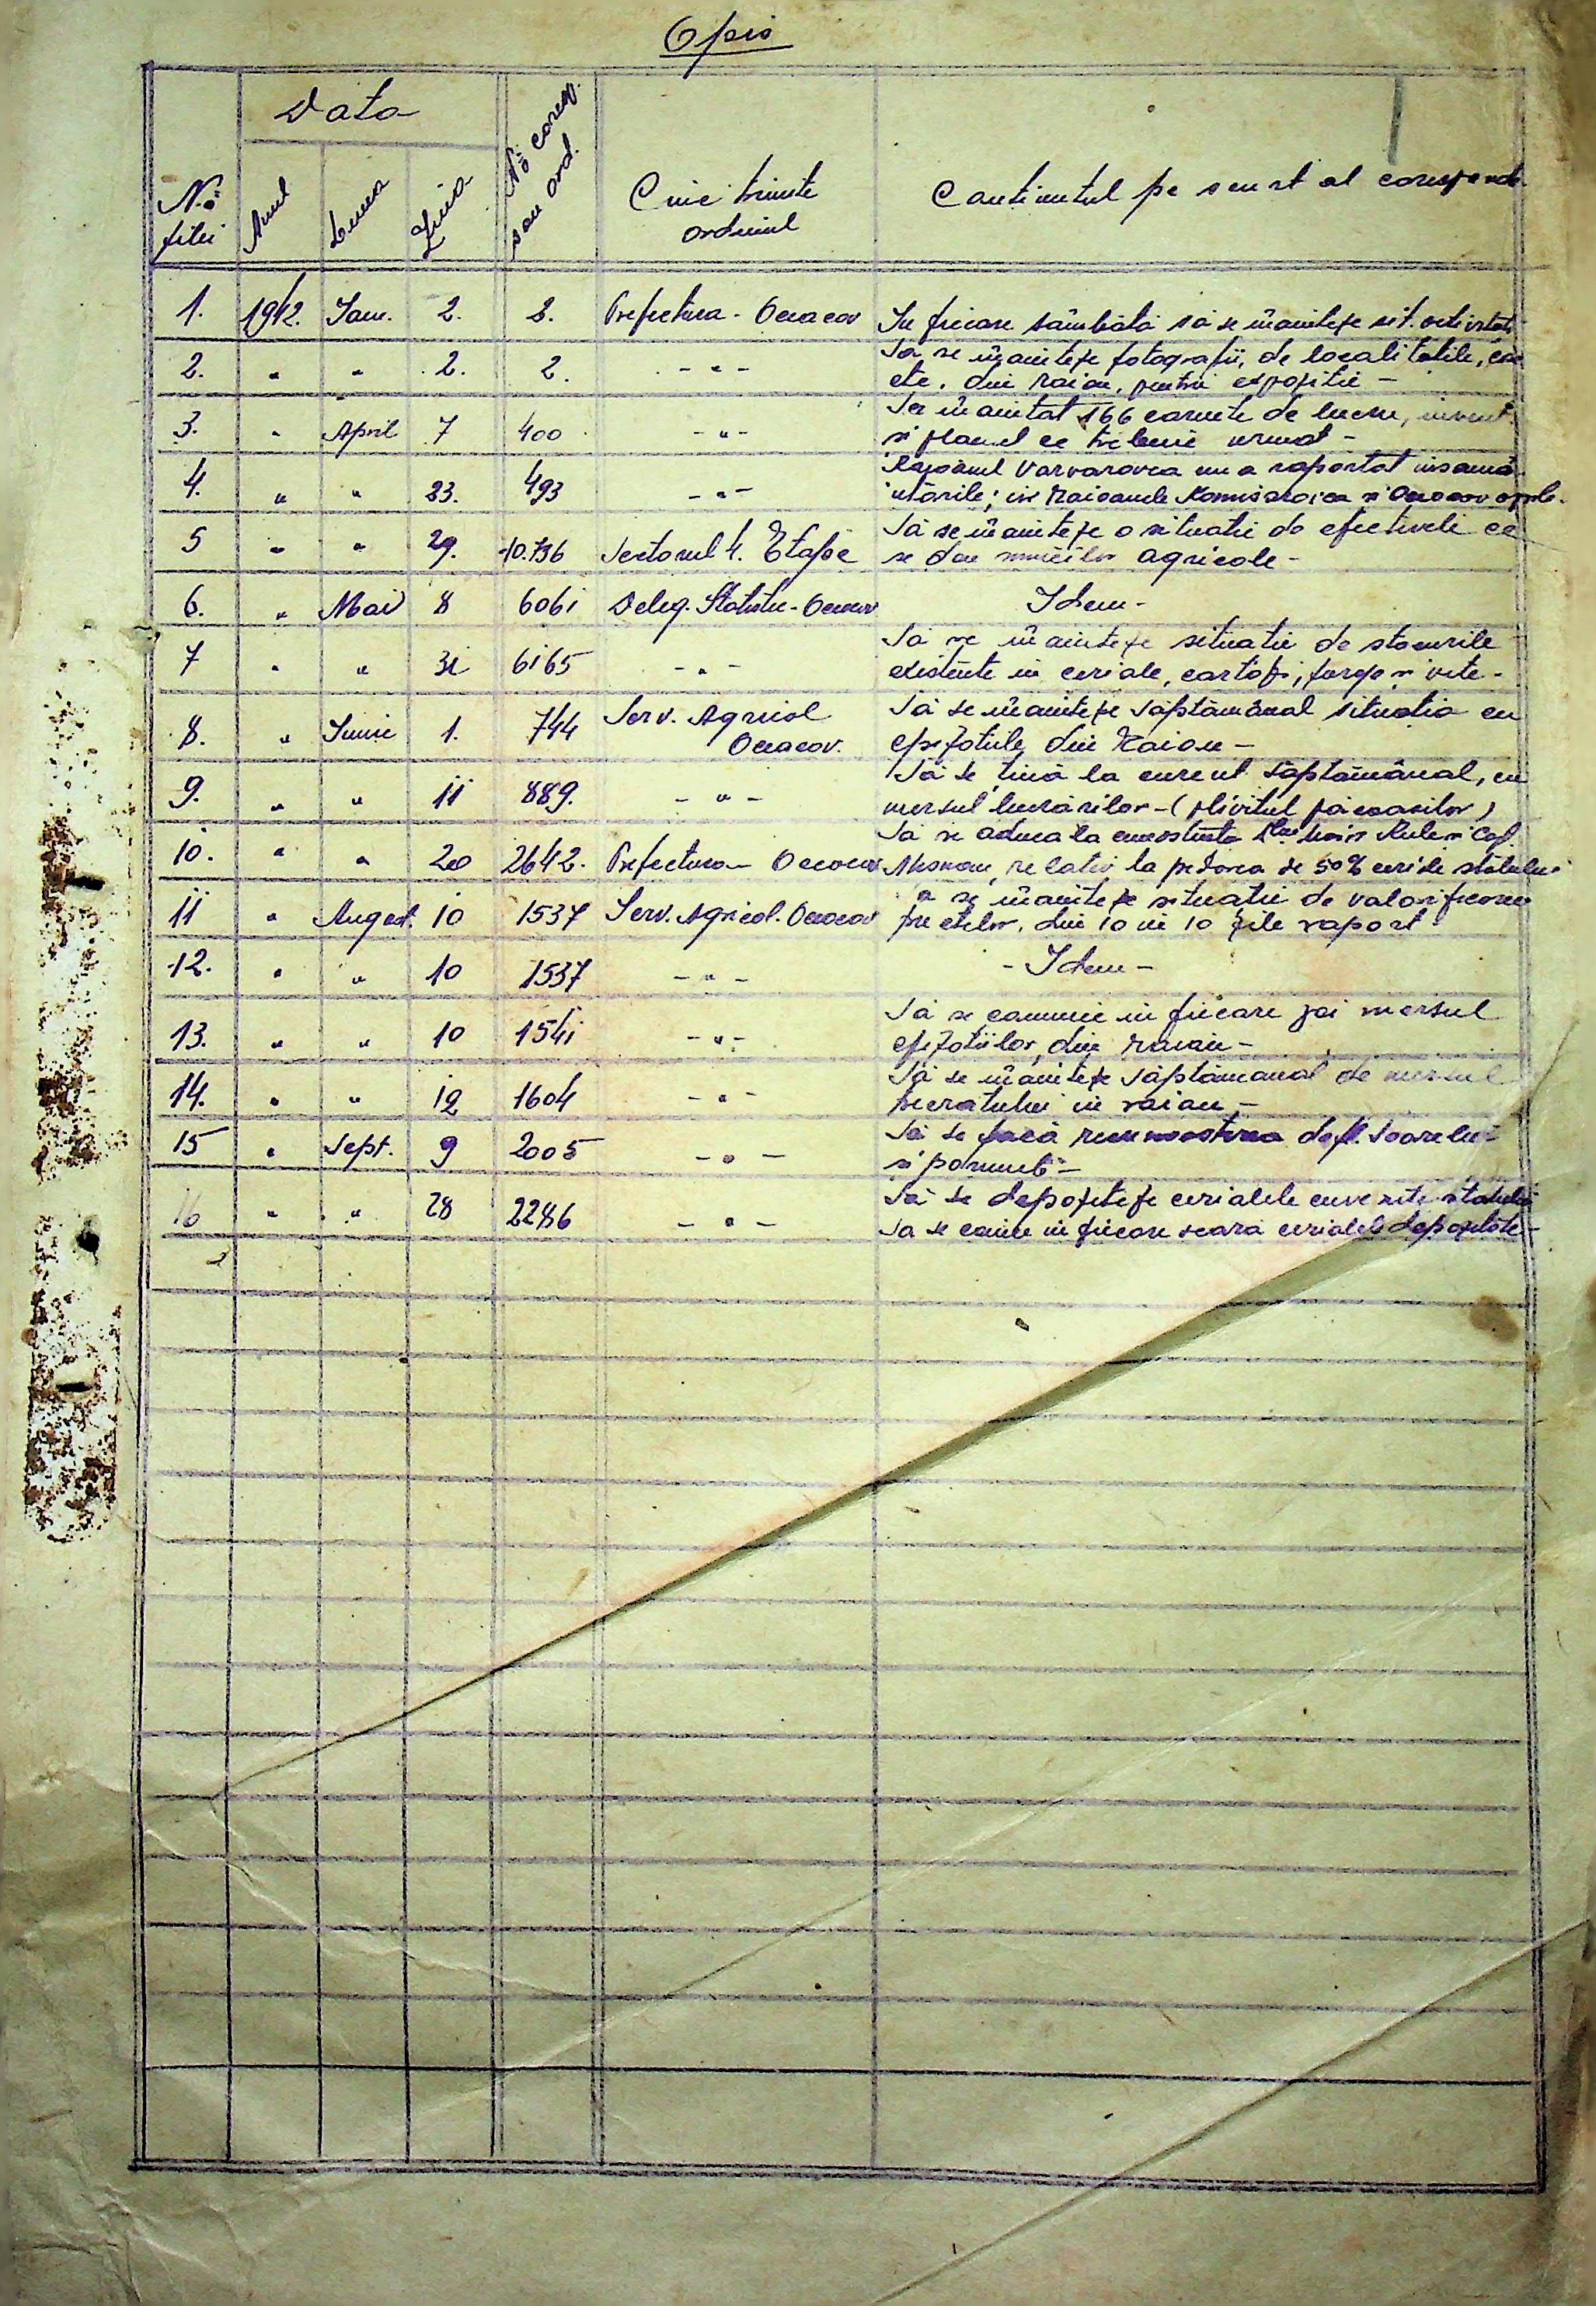 Opis
Data
No filei
Anul
Luna
Ziua
No coresp. sau ord.
Cine trimite
ordinul
Continutul pe scurt al corespond.
1. 1942. Ianu. 2. 2. Prefectura - Oceacov In fiecare sâmbătă să se înainteze sit.
2. " " 2. 2. - " - Să se înainteze fotografii, de localitatile,
etc. din raion, pentru expozitie -
3. " April 7 400 - " - S'a înaintat 166 carnete de lucru,
si planul ce trebuie urmat -
4. " " 23. 493 - " - Rajonul Varvarovca nu a raportat insamân-
tările; in Raioanele si Oceacov
5 " " 29. 10.736 Sectorul 4. Etape Să se înainteze o situatie de efectivele ce
se dau muncilor agricole -
6. " Mai 8 6061 Deleg. Statistic - Oceacov Idem -
7 " " 31 6165 - " - Să se înainteze situatie de stocurile
existente in ceriale, cartofi, furaje si vite -
8. " Iunie 1. 744 Serv. Agricol
Oceacov. Să se înainteze săptămânal situatia cu
epizotiile din Raion -
9. " " 11 889. - " - Să se tină la curent săptămânal, cu
mersul lucrărilor - (plivitul păioaselor)
10. " " 20 2642. Prefectura - Oceacov Să se aduca la cunostinta
relativ la predarea de 50% ceriale statului
11 " August. 10 1537 Serv. Agricol. Oceacov a se înainteze situatii de valorificarea
din 10 in 10 zile raport
12. " " 10 1537 - " - - Idem -
13. " " 10 1541 - " - Să se comunice in fiecare joi mersul
epizotiilor, din raion -
14. " " 12 1604 - " - Să se înainteze săptămanal de mersul
treeratului in raion -
15 " Sept. 9 2005 - " - Să se facă recunoasterea de fl. soarelui
si porumb -
16 " " 28 2286 - " - Să se depoziteze cerialele cuvenite statului
Sa se comunice in fiecare seara cerialele depozitate -